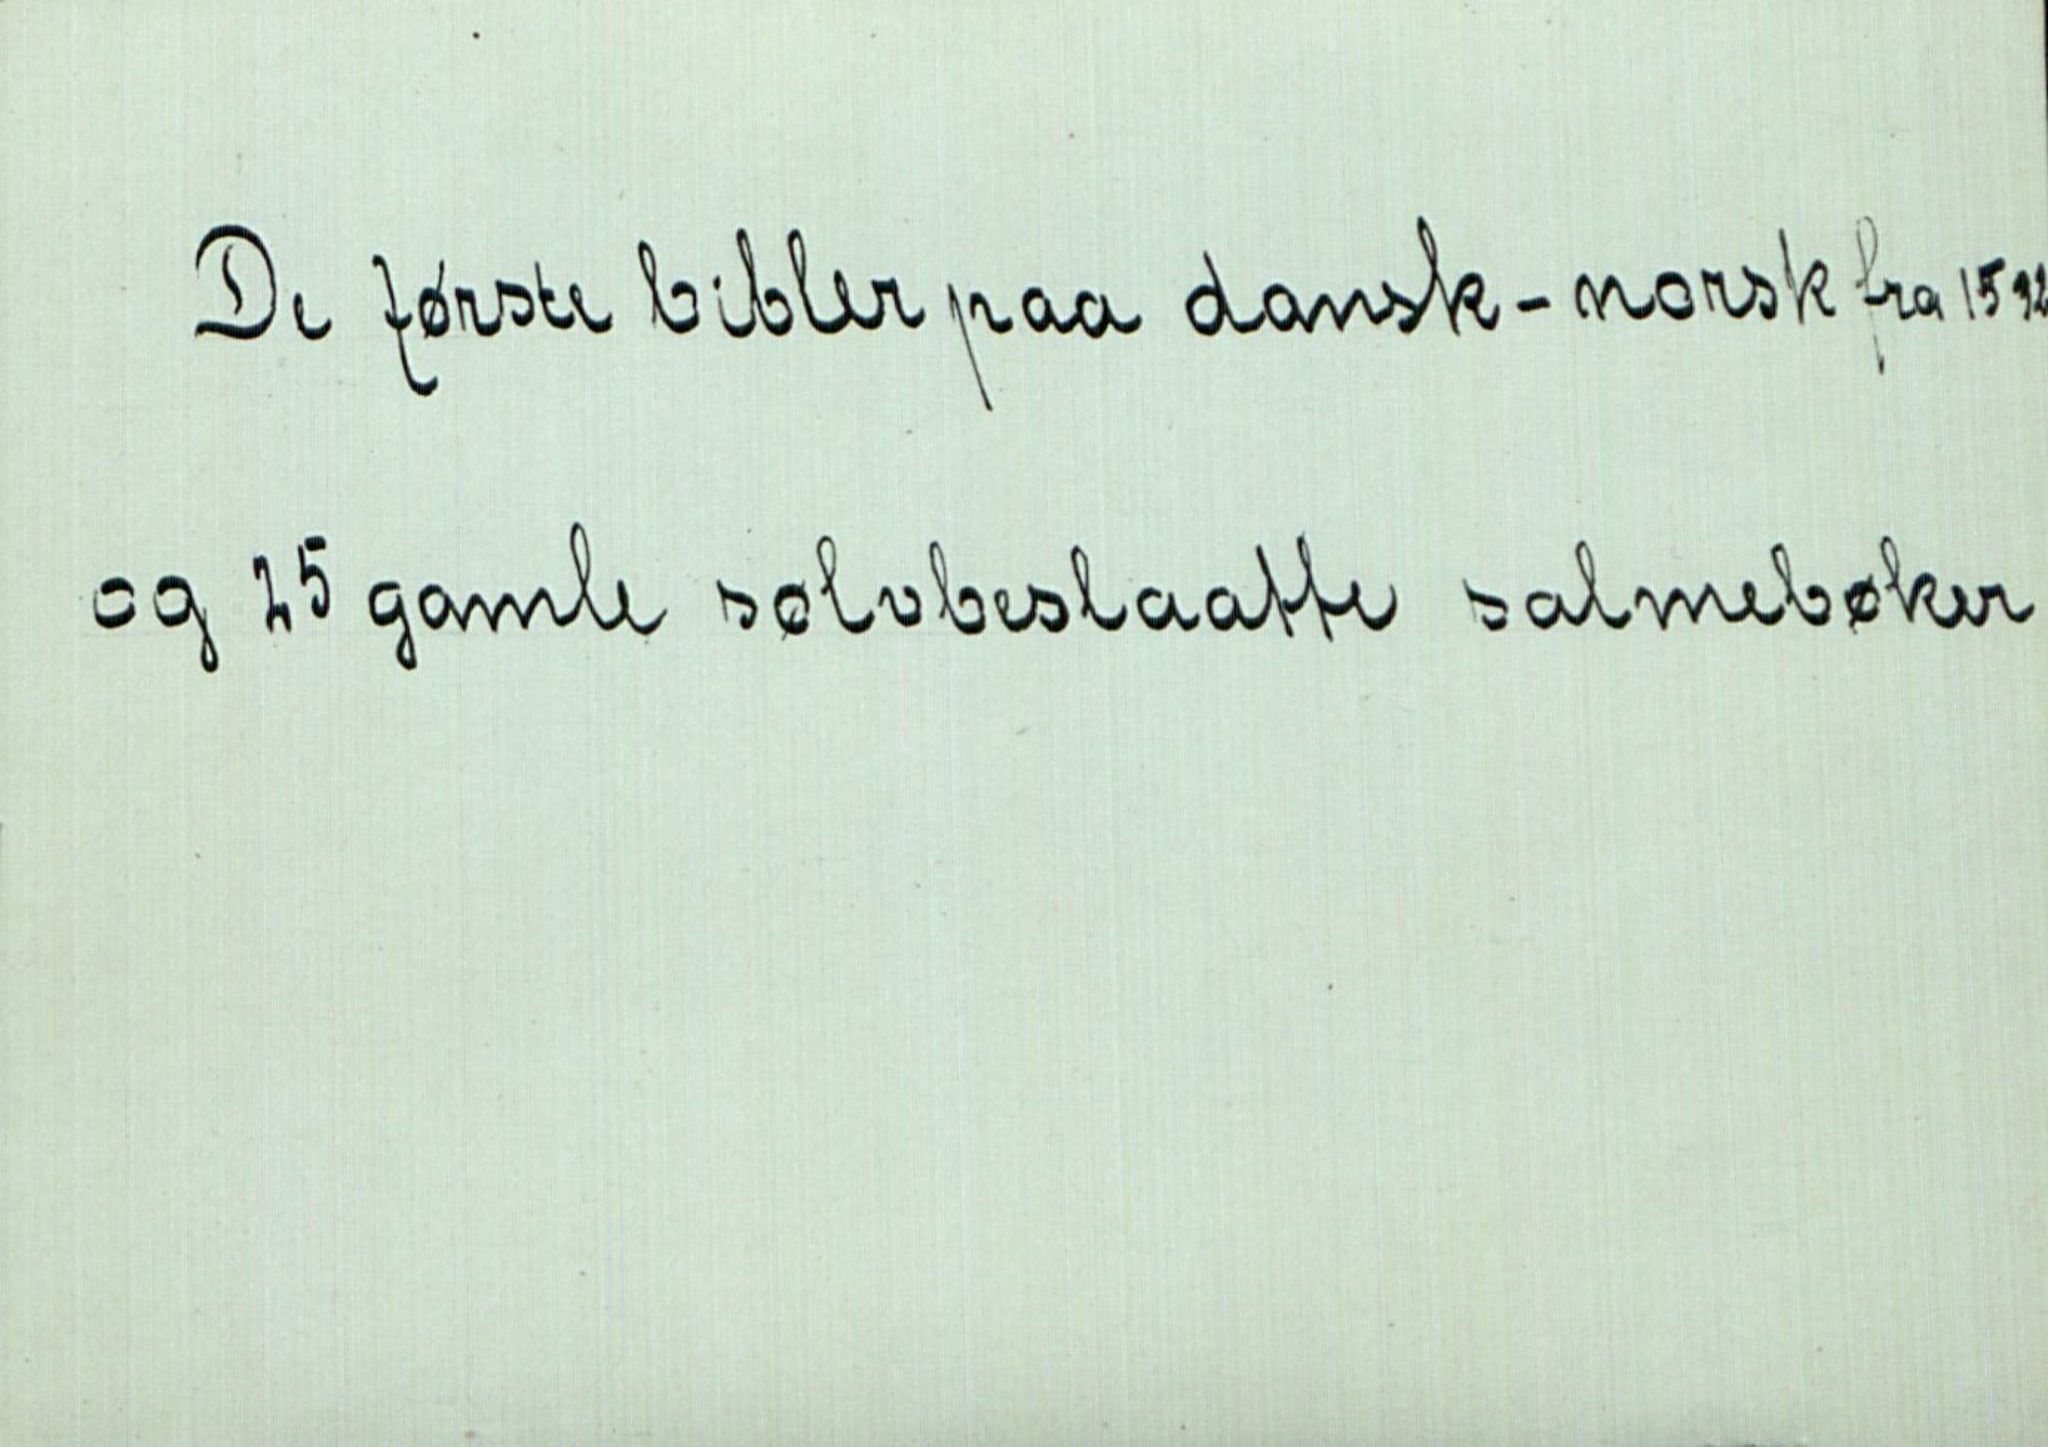 De første bibler paa dansk-norsk fra 1592
og 25 gamle sølvbeslaatte salmebøker